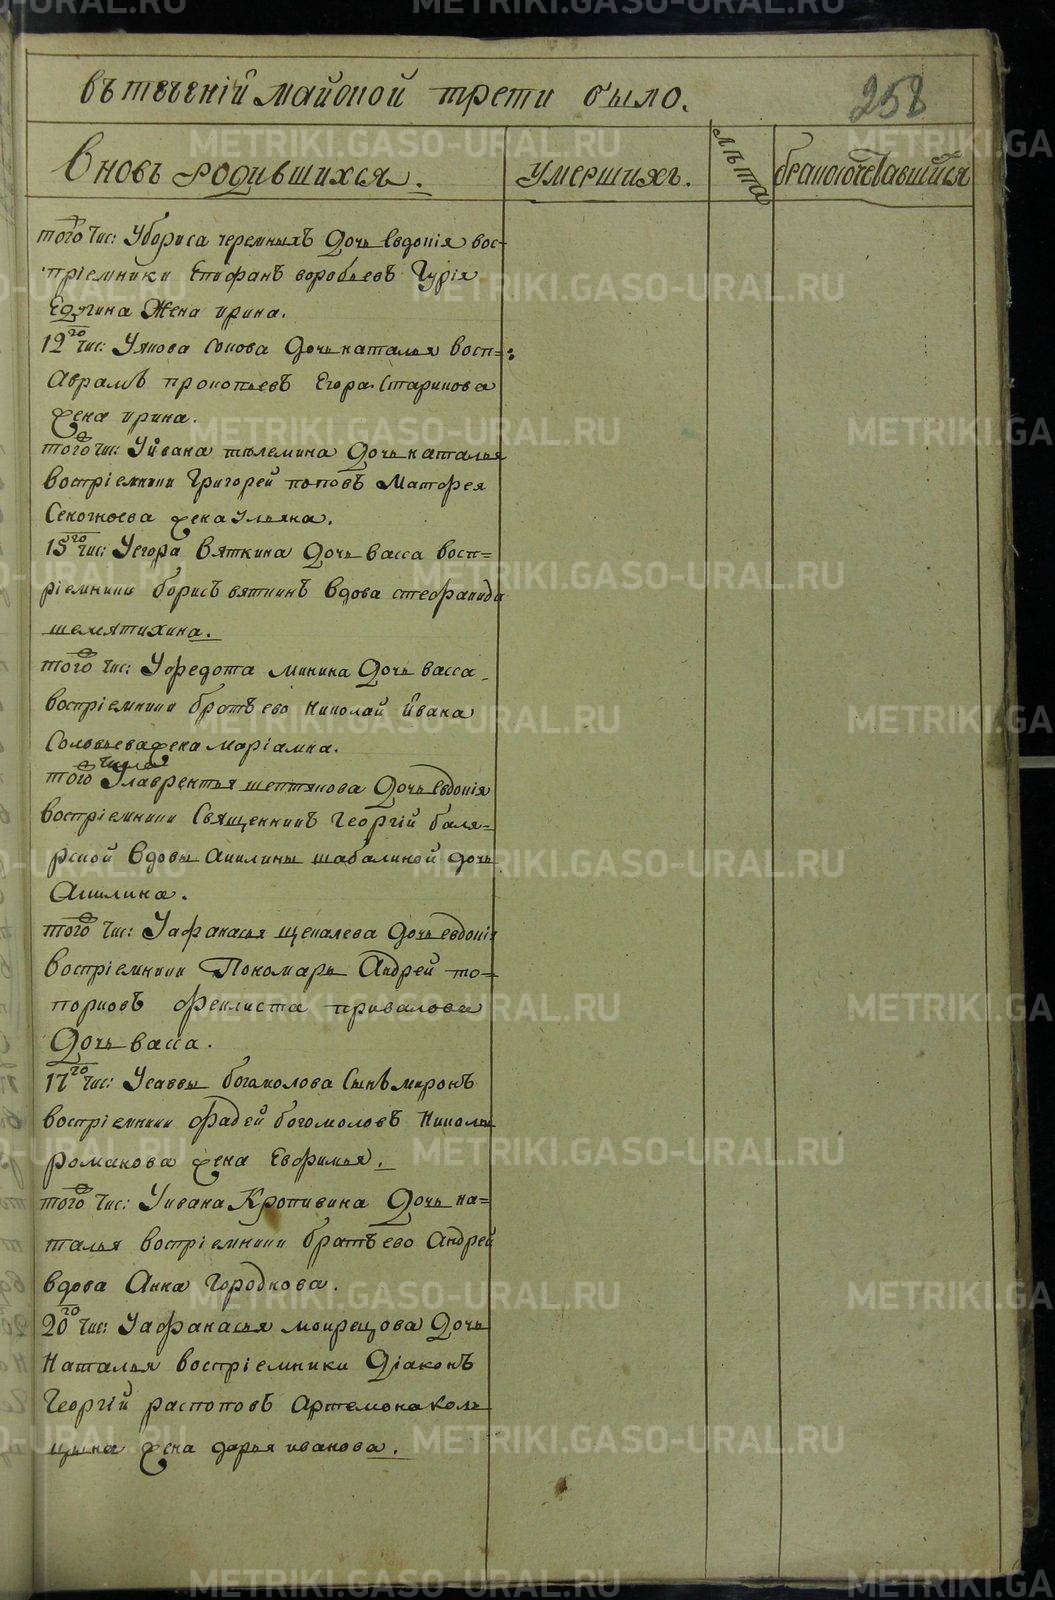 въ теченiй майской трети было.
258
Вновь родившихся.
умерших.
лѣта
бракосочетавшийся
того чис: У бориса черемныхъ Дочь Евдокiя вос-
прiемники Епифанъ воробьевъ Гурiя
Едугина Жена ирина.
12го чис: У якова сонова Дочь наталья восп=:
Аврамъ прокопьевъ Егора Старикова
жена ирина.
того чис: У йвана телемина Дочь наталья
воспрiемники Григорей поповъ Матфея
жена ульяна.
15го чис: У егора Вяткина Дочь васса восп=
рiемники борисъ вяткинъ Вдова стефанида
шемятихина.
того чис: У федота минина Дочь васса
воспрiемники братъ ево николай йвана
Соловьева жена марiамна.
того числа У лаврентья шептякова Дочь евдокiя
воспрiемники Священникъ Георгiй баля=
рской Вдовы акилины шабалиной дочь
Акилина.
того чис: У афанасья щекалева Дочь евдокiя
воспрiемники Пономарь Андрей то=
порковъ феклиста привалова
Дочь васса.
17го чис: У саввы богомолова Сынъ миронъ
воспрiемники фадей богомоловъ Николы
романова жена Евфимья.
того чис: У ивана Кропивина Дочь на=
талья воспрiемники братъ ево Андрей
вдова Анна Городкова.
20го чис: У афанасья мокрецова Дочь
Наталья воспрiемники Дiаконъ
Георгiй распоповъ Артемона коль
цына жена дарья иванова.
METRIKI.GASO-URAL.RU